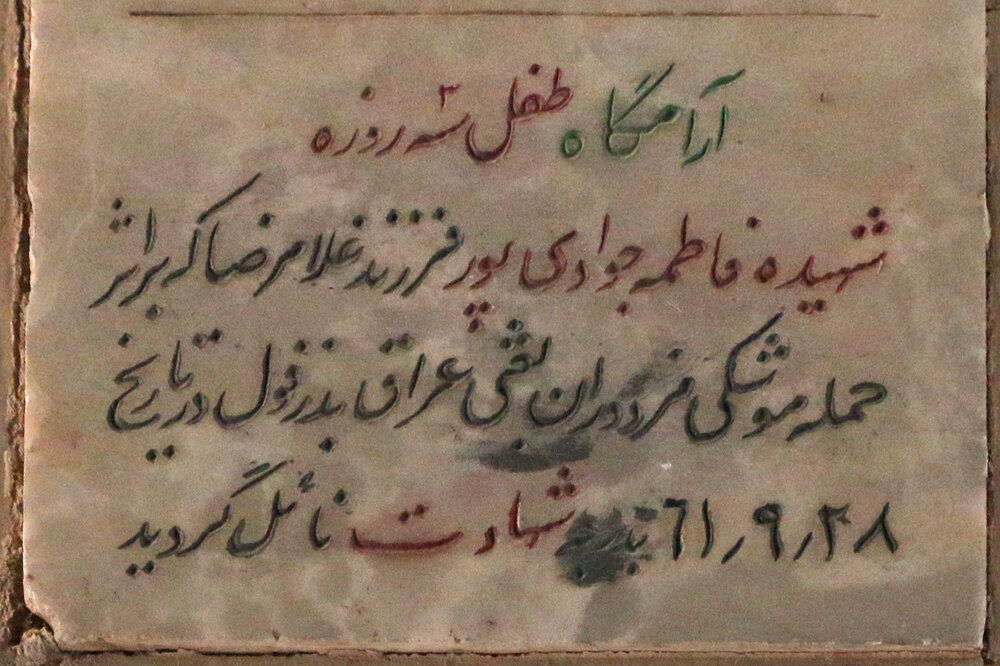 آرامگاه طفل سه ۳ روزه
شهیده فاطمه جوادی پور فرزند غلامرضا که بر اثر
حمله موشکی مزدوران بعثی عراق بدزفول در تاریخ
۶۱٫۹٫۲۸ بدرجه شهادت نائل گردید